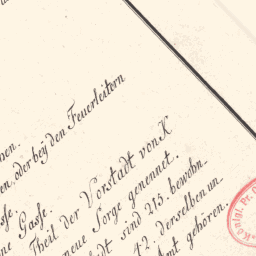 en, oder bey den Feuerleitern
sse.
ne Gasse.
Theil der Vorstadt von K
neue Sorge genennet.
dt sind 215. bewohn.
42 derselben un
Amt gehören.
Königl. Pr.